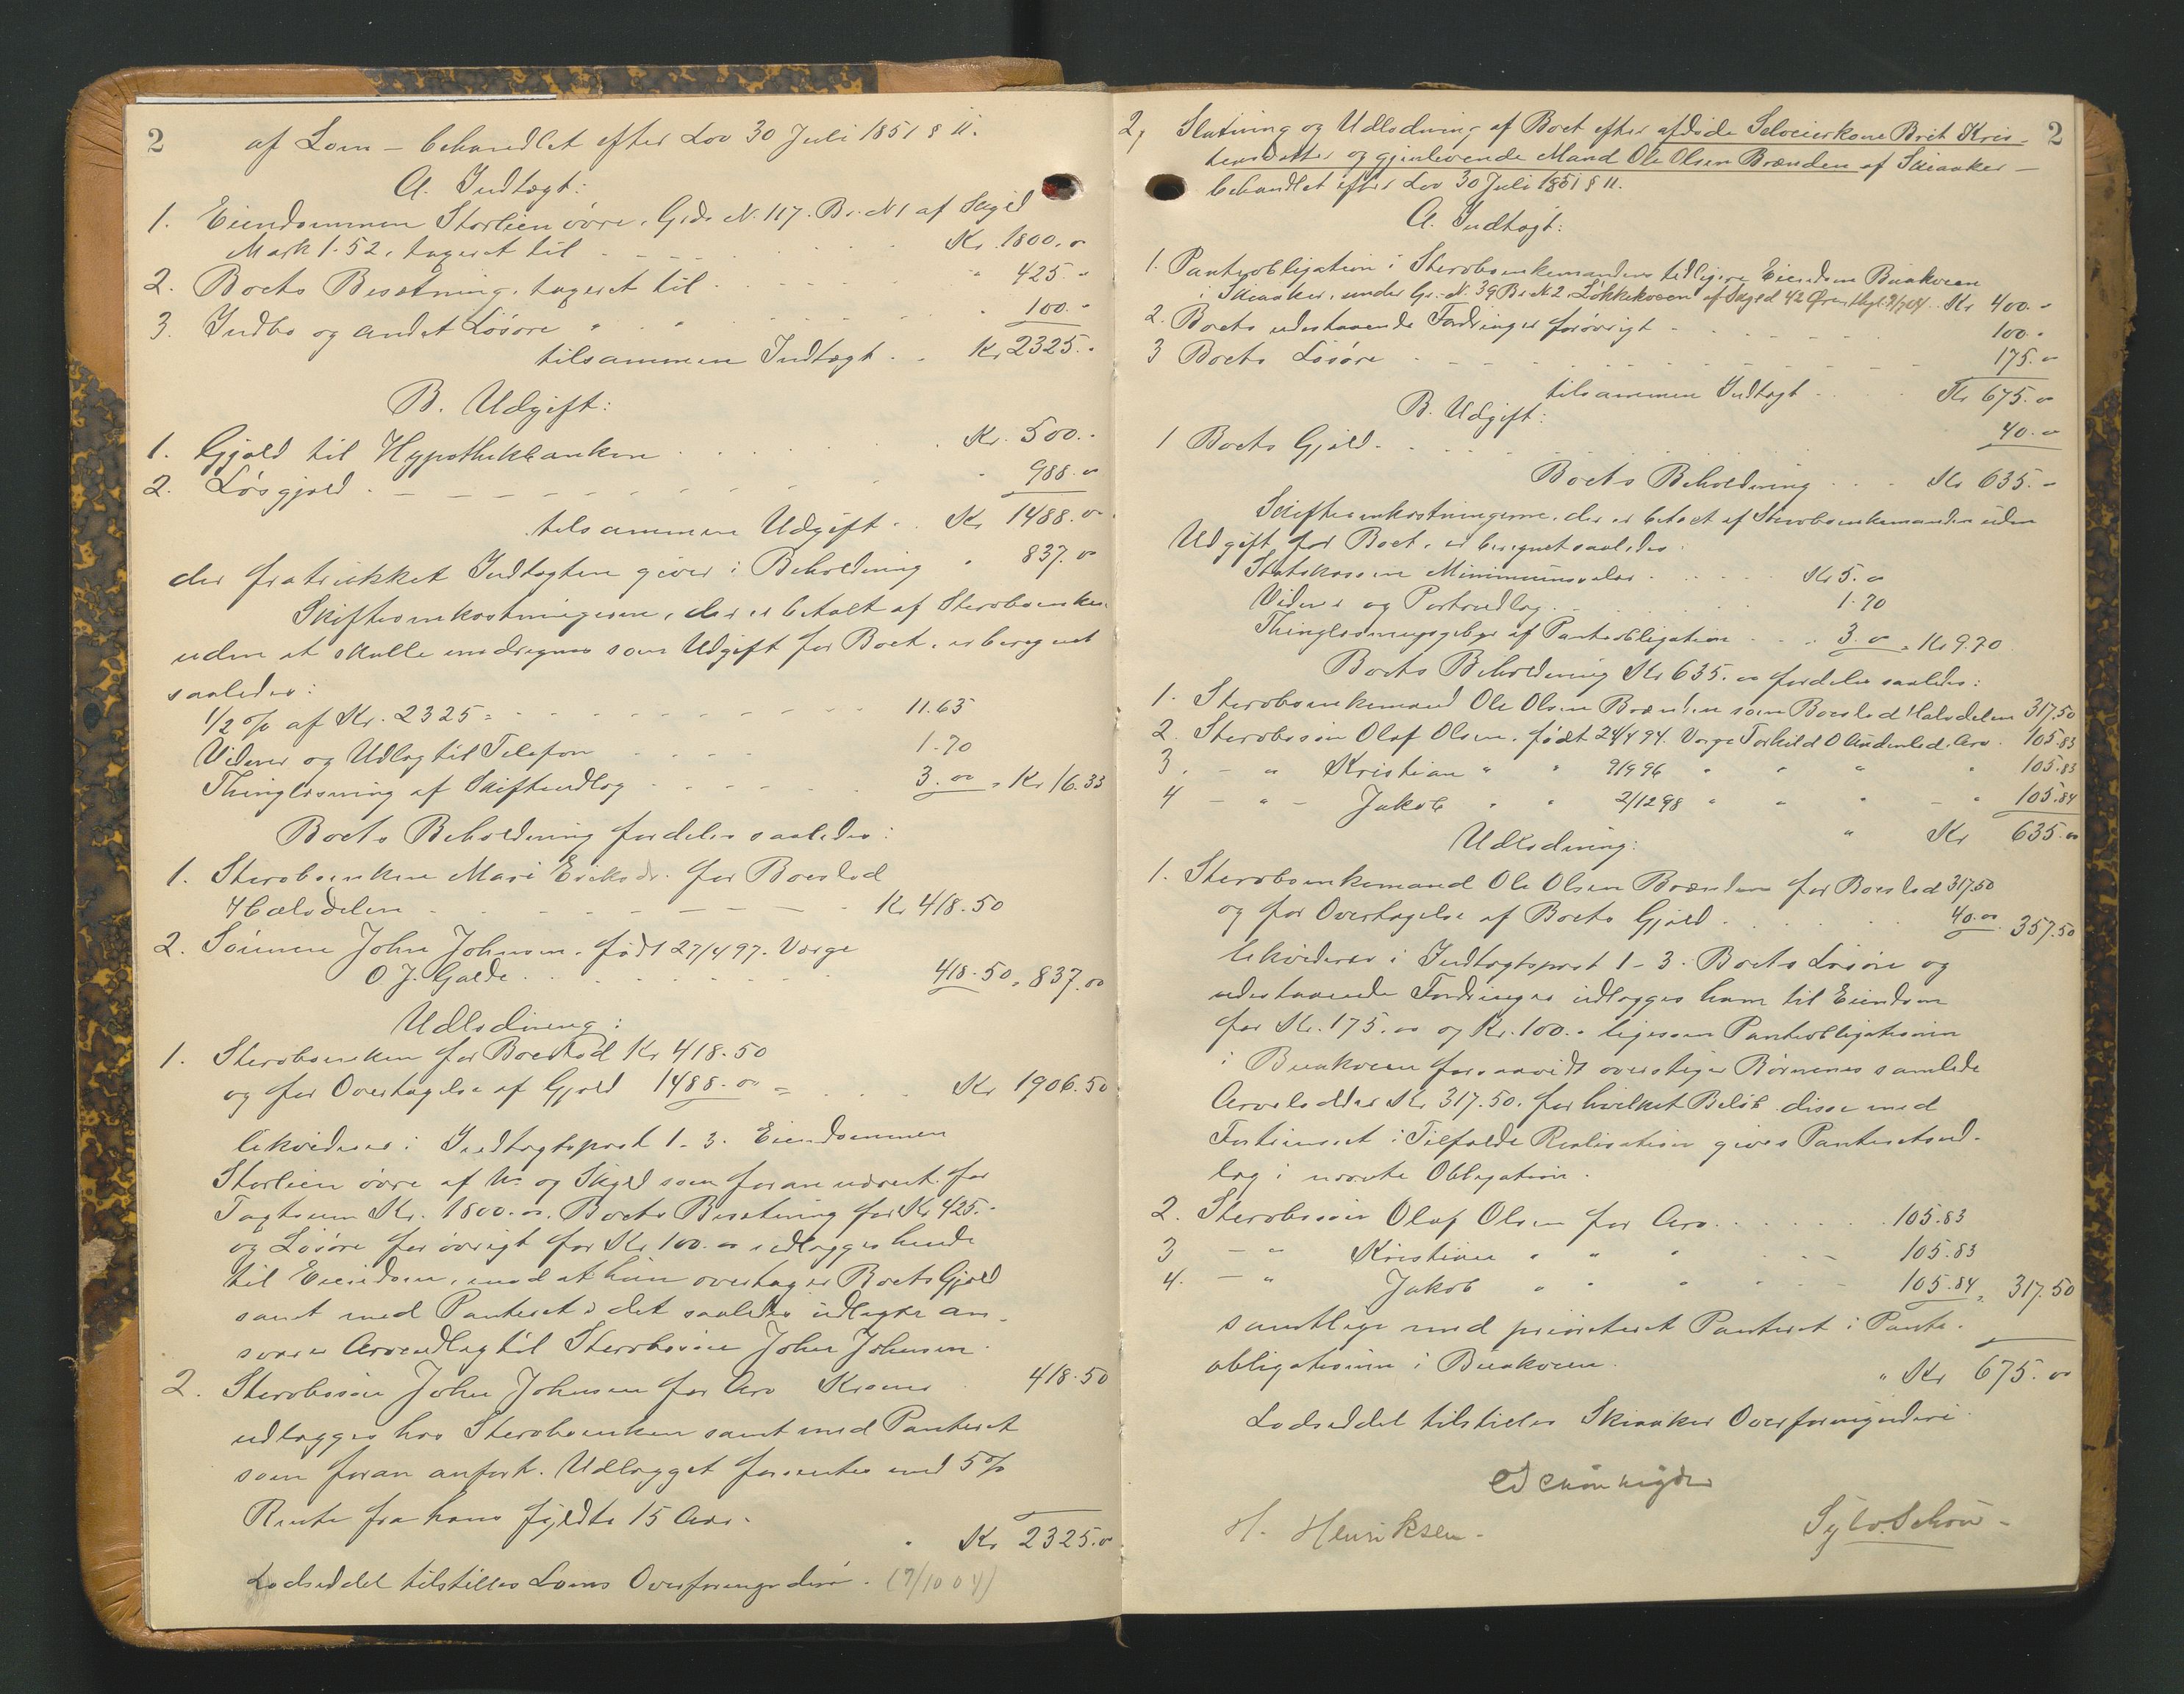 2
af Lom – behandlet efter Lov 30 Juli 1851 § 11.
A. Indtægt:
1. Eiendommen Storlien øvre, Grds N. 117. Br. N 1 af Skyld
Mark 1.52, taxeret til Kr. 1800.00
2. Boets Besætning, taxeret til " 425.-
3. Indbo og andet Løsøre " " " 100.-
tilsammen Indtægt Kr 2325.-
B. Udgift:
1. Gjæld til Hypothekbanken Kr. 500.-
2. Løsgjæld " 988.00
tilsammen Udgift Kr 1488.00
der fratrukket Indtægten giver i Beholdning " 837.00
Skifteomkostningerne, der er betalt af Stervboenken
uden at skulle medregnes som Udgift for Boet, er beregnet
saaledes:
1/2 % af Kr. 2325 = 11.63
Videres og Udlæg til Telefon 1.70
Thinglæsning af Skifteudlæg 3.00 = Kr 16.33
Boets Beholdning fordeles saaledes:
1. Stervboenken Mari Eriksdr. for Boeslod
Halvdelen Kr 418.50
2. Sønnen John Johnsen, født 27/4 97. Værge
O J. Galde 418.50 = 837.00
Udlodning:
1. Stervboenken for Boeslod Kr 418.50
og for Overtagelse af Gjæld 1488.00 = Kr 1906.50
likvideres i Indtægtspost 1-3. Eiendommen
Storlien øvre af No og Skyld som foran nævnt for
Taxtsum Kr. 1800.00. Boets Besætning for Kr 425.-
og Løsøre forøvrigt for Kr 100.00 udlægges hende
til Eiendom, mod at hun overtager Boets Gjæld
samt med Panteret i det saaledes udlagte an-
svarer Arveudlæg til Stervbosøn John Johnsen.
2. Stervbosøn John Johnsen for Arv Kroner 418.50
udlægges hos Stervboenken samt med Panteret
som foran anført. Udlægget forrentes med 5 %
Rente fra hans fyldte 15 Aar.
" Kr 2325.00
Lodseddel tilstilles Loms Overformynderi. (7/10 04)
2
2, Slutning og Udlodning af Boet efter afdøde Selveierkone Brit Kris-
tensdatter og gjenlevende Mand Ole Olsen Brænden af Skiaaker –
behandlet efter Lov 30 Juli 1851 § 11.
A. Indtægt:
1. Panteobligation i Stervboenkemandens tidligere Eiendom
i Skiaaker, under Gr. N. 39 Br. N 2 Løkkekveen af Skyld 42 Øre, Kr 400.-
2. Boets udestaaende Fordringer forøvrigt 100.-
3 Boets Løsøre 175.00
tilsammen Indtægt Kr 675.00
B. Udgift:
1 Boets Gjæld 40.00
Boets Beholdning Kr 635.-
Skifteomkostningerne, der er betalt af Stervboenkemanden uden
Udgift for Boet, er beregnet saaledes:
Statskassens Minimumsdeler Kr 5.00
Videres og Portoudlæg 1.70
Thinglæsningsgebyr af Panteobligation 3.00 = Kr 9.70
Boets Beholdning Kr 635.00 fordeles saaledes:
1. Stervboenkemand Ole Olsen Brænden som Boeslod Halvdelen 317.50
2. Stervbosøn Olaf Olsen, født 24/4 94. Værge Torkild O Andenlod, Arv 105.83
3. – " Kristian " " 9/9 96 " " " " 105.83
4 – " – Jakob " " 2/12 98 " " " – " 105.84
" Kr 635.00
Udlodning:
1. Stervboenkemand Ole Olsen Brænden for Boeslod 317.50
og for Overtagelse af Boets Gjæld 40.00 357.50
likvideres i Indtægtspost 1-3. Boets Løsøre og
udestaaende Fordringer udlægges ham til Eiendom
for Kr. 175.00 og Kr. 100.- ligesom Panteobligationen
i forsaavidt overstiger Børnenes samlede
Arvelodder Kr 317.50, for hvilket Beløb disse med
Fortrinsret i Tilfælde Realisation gives Panteretsud-
læg i nævnte Obligation.
2. Stervbosøn Olaf Olsen for Arv 105.83
3 – " Kristian " " " 105.83
4. – " Jakob " " " 105.84 = 317.50
samtlige med prioriteret Panteret i Pante-
obligationen i
" Kr 675.00
Lodseddel tilstilles Skiaaker Overformynderi.
H. Henriksen.
Sylv. Schou